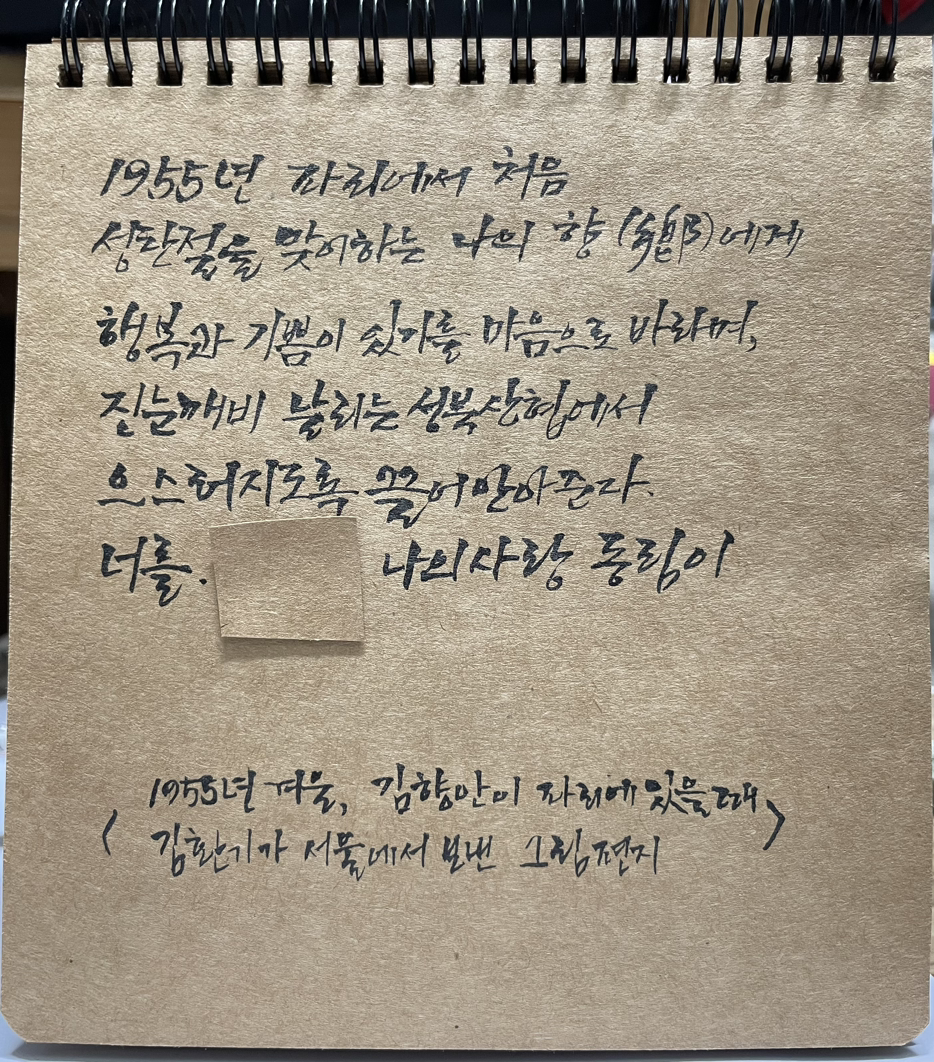 1955년 파리에서 처음
성탄절을 맞이하는 나의 향(鄕)에게
행복과 기쁨이 있기를 마음으로 바라며,
진눈깨비 날리는 성북산협에서
으스러지도록 끌어안아준다.
너를. 나의 사랑 동림이
1955년 겨울, 김향안이 파리에 있을 때
김환기가 서울에서 보낸 그림편지